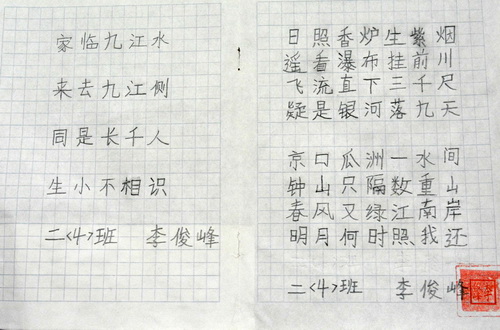 家临九江水
来去九江侧
同是长千人
生小不相识
二<4>班 李俊峰
日照香炉生紫烟
遥看瀑布挂前川
飞流直下三千尺
疑是银河落九天
京口瓜洲一水间
钟山只隔数重山
春风又绿江南岸
明月何时照我还
二<4>班 李俊峰